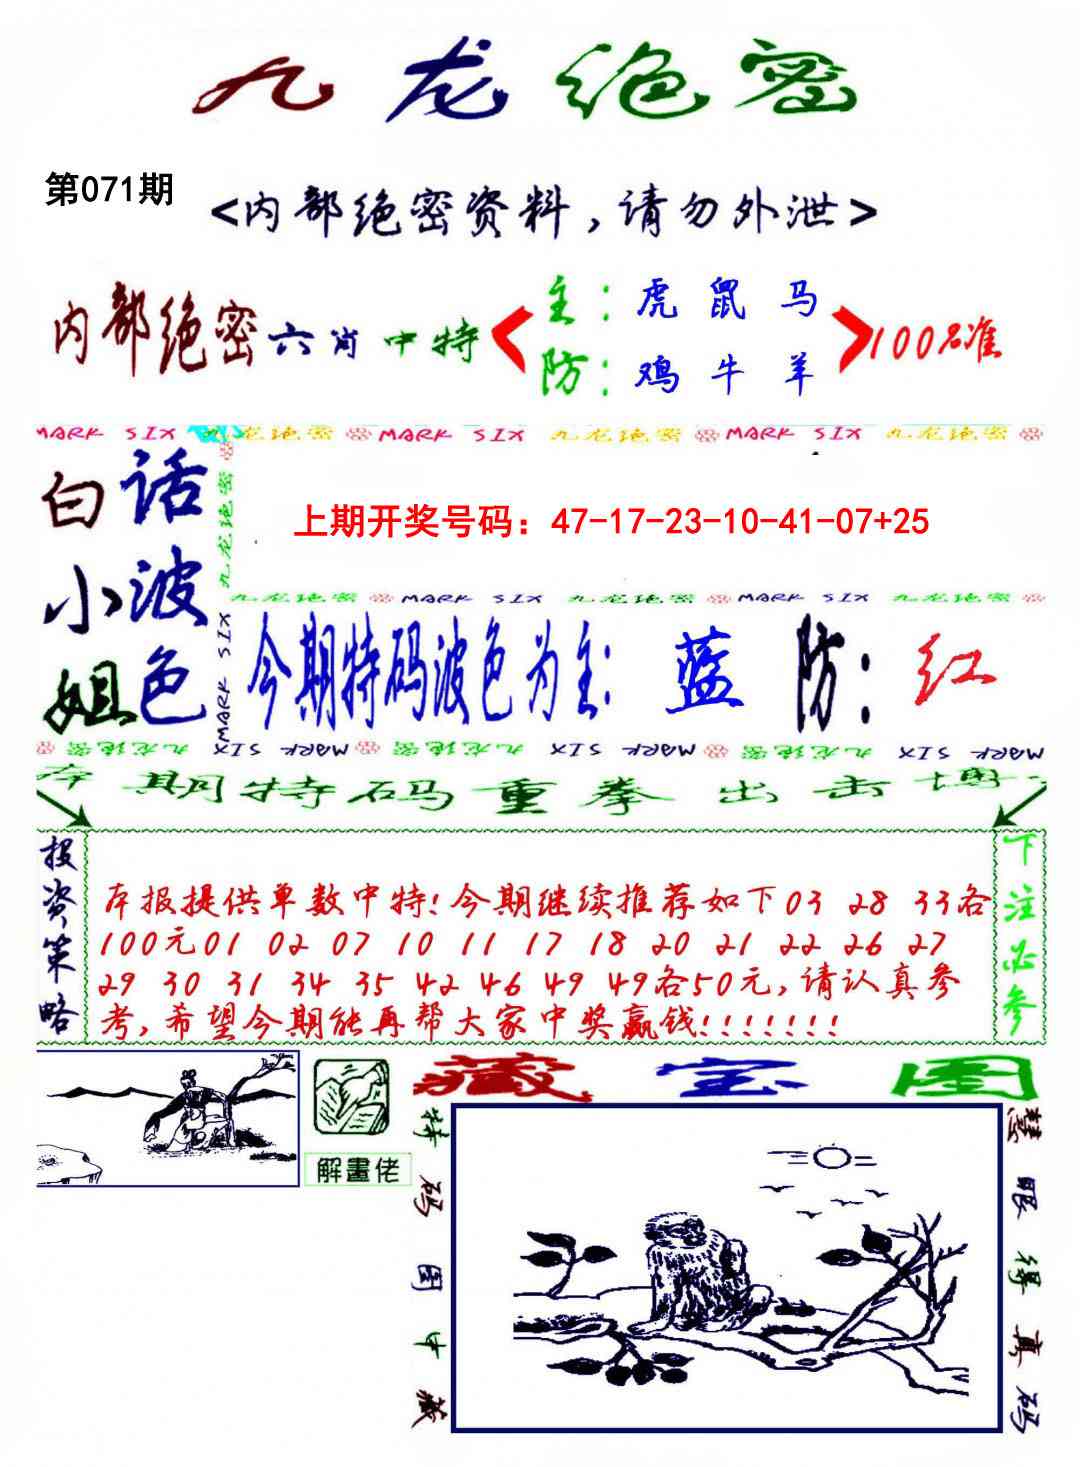 九龙绝密
第071期
<内部绝密资料,请勿外泄>
内部绝密六肖中特
主:虎 鼠 马
防:鸡 牛 羊
100%准
MARK SIX 九龙绝密 MARK SIX 九龙绝密 MARK SIX 九龙绝密
白小姐
话波色
九龙绝密
MARK SIX
上期开奖号码：47-17-23-10-41-07+25
九龙绝密 MARK SIX 九龙绝密 MARK SIX 九龙绝密
今期特码波色为主:蓝 防:红
九龙绝密 MARK SIX 九龙绝密 MARK SIX 九龙绝密 MARK SIX
本期特码重拳出击博
投资策略
本报提供单数中特!今期继续推荐如下03 28 33各
100元01 02 07 10 11 17 18 20 21 22 26 27
29 30 31 34 35 42 46 49 49各50元,请认真参
考,希望今期能再帮大家中奖赢钱!!!!!!!
下注必参
解畫佬
藏宝图
特码图中藏
慧眼得真码